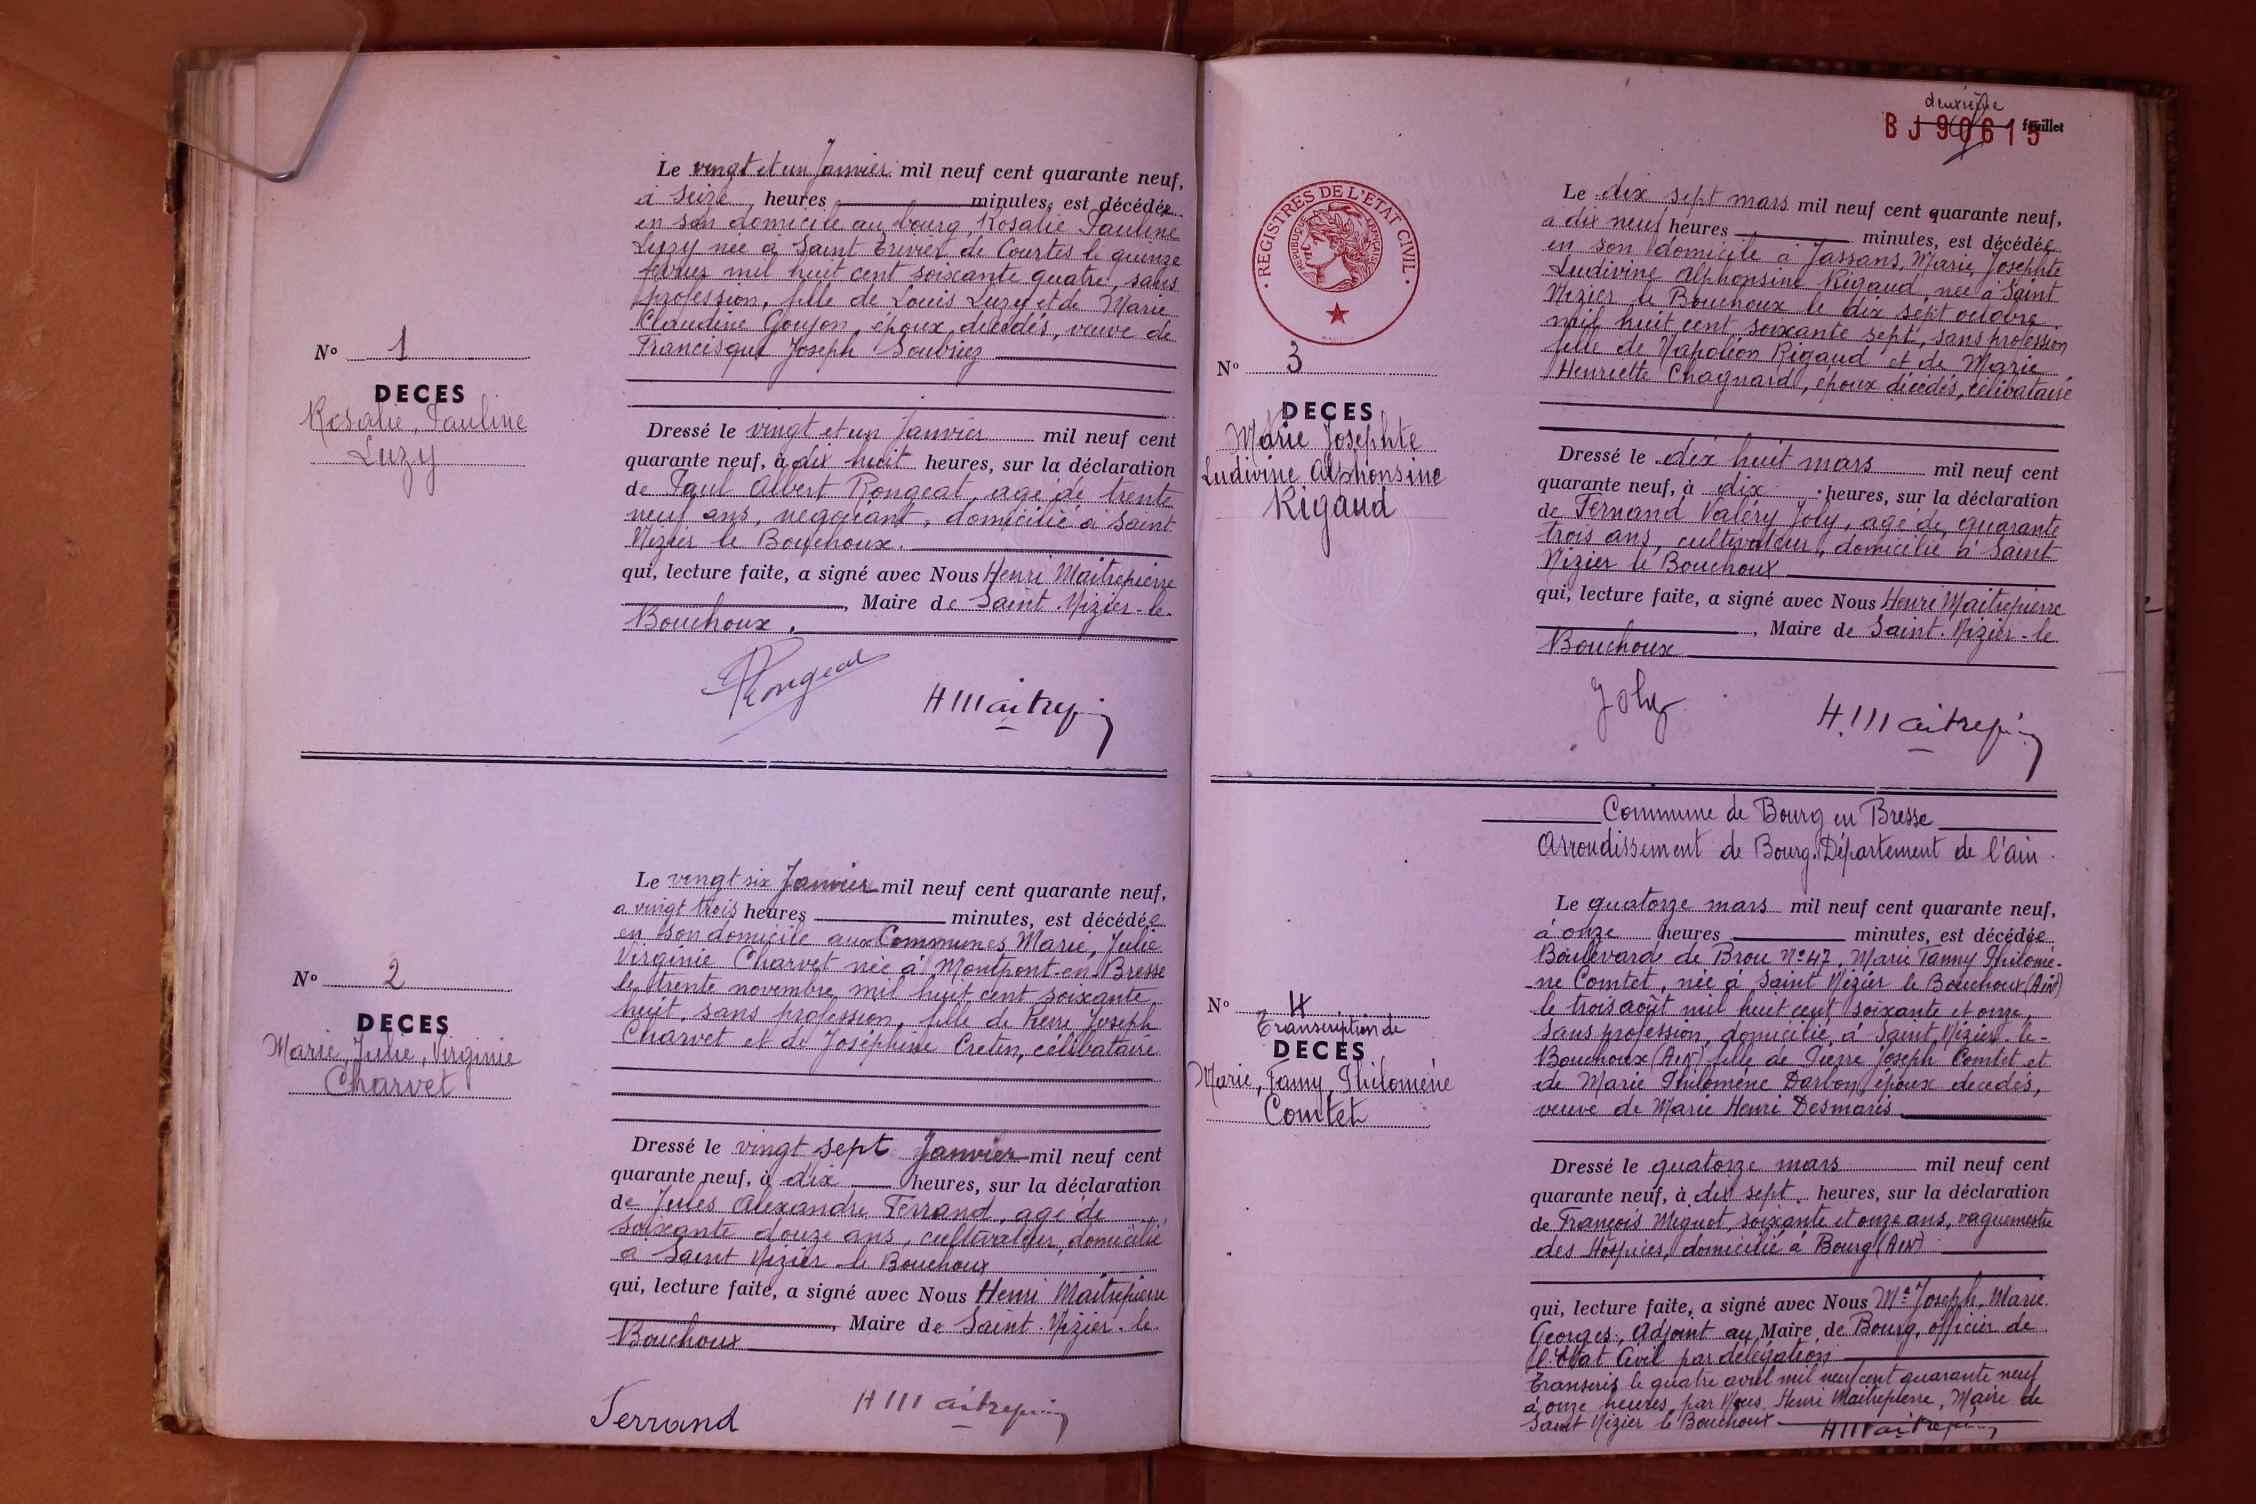 Le vingt et un Janvier mil neuf cent quarante neuf,
à seize heures minutes, est décédée
en son domicile au bourg, Rosalie Pauline
Luzy née à Saint Trivier de Courtes le quinze
février mil huit cent soixante quatre, sans
profession, fille de Louis Luzy et de Marie
Claudine Goujon, époux décédés, veuve de
Francisque Joseph
N° 1
DECES
Rosalie, Pauline
Luzy
Dressé le vingt et un Janvier mil neuf cent
quarante neuf, à dix huit heures, sur la déclaration
de Paul Albert Rongeat, agé de trente
neuf ans, négociant, domicilié à Saint
Nizier le Bouchoux.
qui, lecture faite, a signé avec Nous Henri Maitrepierre
, Maire de Saint-Nizier-le-
Bouchoux.
Rongeat
H Maitrepierre
Le vingt six Janvier mil neuf cent quarante neuf,
a vingt trois heures minutes, est décédée
en son domicile aux Communes Marie, Julie
Virginie Charvet née à Montpont-en-Bresse
le trente novembre mil huit cent soixante
huit, sans profession, fille de Pierre Joseph
Charvet et de Joséphine Cretin, célibataire
N° 2
DECES
Marie, Julie, Virginie
Charvet
Dressé le vingt sept Janvier mil neuf cent
quarante neuf, à dix heures, sur la déclaration
de Jules Alexandre Ferrand, agé de
soixante douze ans, cultivateur, domicilié
à Saint Nizier le Bouchoux
qui, lecture faite, a signé avec Nous Henri Maitrepierre
, Maire de Saint-Nizier-le-
Bouchoux
Ferrand
H Maitrepierre
deuxième
BJ 90615 feuillet
REGISTRES DE L'ETAT CIVIL
REPUBLIQUE FRANÇAISE
Le dix sept mars mil neuf cent quarante neuf,
a dix neuf heures minutes, est décédée
en son domicile à Jassans, Marie, Josephte
Ludivine Alphonsine Rigaud née à Saint
Nizier le Bouchoux le dix sept octobre
mil huit cent soixante sept, sans profession
fille de Napoléon Rigaud et de Marie
Henriette Chagnard, époux décédés, célibataire
N° 3
DECES
Marie Josephte
Ludivine Alphonsine
Rigaud
Dressé le dix huit mars mil neuf cent
quarante neuf, à dix heures, sur la déclaration
de Fernand Valéry Joly, agé de quarante
trois ans, cultivateur, domicilié à Saint
Nizier le Bouchoux
qui, lecture faite, a signé avec Nous Henri Maitrepierre
, Maire de Saint-Nizier-le
Bouchoux
Joly
H. Maitrepierre
Commune de Bourg en Bresse
Arrondissement de Bourg. Département de l'ain.
Le quatorze mars mil neuf cent quarante neuf,
à onze heures minutes, est décédée
Boulevard de Brou N° 47, Marie Fanny Philomè-
-ne Comtet, née à Saint Nizier le Bouchoux (Ain)
le trois août mil huit cent soixante et onze,
sans profession, domiciliée à Saint Nizier-le-
Bouchoux (Ain) fille de Pierre Joseph Comtet et
de Marie Philomène Darbon, époux décédés,
veuve de Marie Henri Desmaris
N° 4
Transcription de
DECES
Marie, Fanny, Philomène
Comtet
Dressé le quatorze mars mil neuf cent
quarante neuf, à dix sept heures, sur la déclaration
de François Mignot, soixante et onze ans, vaguemestre
des Hospices, domicilié à Bourg (Ain)
qui, lecture faite, a signé avec Nous Joseph, Marie
Georges, Adjoint au Maire de Bourg, officier de
l'Etat Civil par délégation
Transcris le quatre avril mil neuf cent quarante neuf
à onze heures par Nous Henri Maitrepierre, Maire de
Saint Nizier le Bouchoux
H Maitrepierre